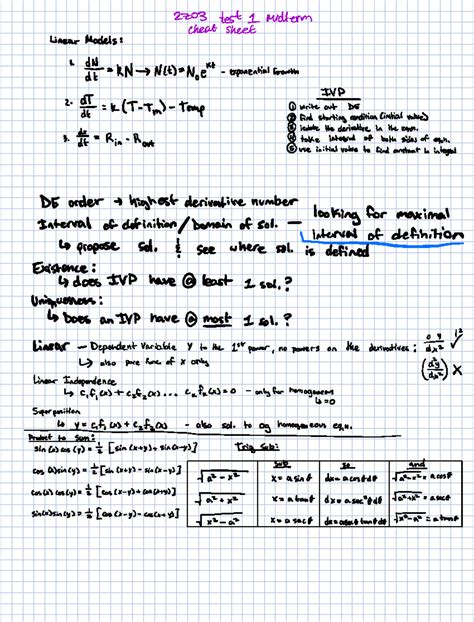 2Z03 test 1 Midterm
cheat sheet
Linear Models:
1. dN/dt = kN → N(t) = N₀e^kt - exponential Growth
2. dT/dt = k(T-Tm) - Temp
3. dx/dt = Rin - Rout
IVP
① write out DE
② find starting condition (initial value)
③ isolate the derivative in the eqn.
④ take integral of both sides of eqn.
⑤ use initial value to find constant in integral
DE order → highest derivative number
Interval of definition / Domain of sol. — looking for maximal
interval of definition
↳ propose sol. & see where sol. is defined
Existence:
↳ does IVP have @ least 1 sol.?
Uniqueness:
↳ Does an IVP have @ most 1 sol.?
Linear — Dependent Variable y to the 1st power, no powers on the derivatives;
↳ also pure func. of x only
Linear Independence
↳ c₁f₁(x) + c₂f₂(x) + ... cₙfₙ(x) = 0 - only for homogenous
↳ =0
Superposition
↳ y = c₁f₁(x) + c₂f₂(x) - also sol. to
Product to Sum:
sin(x)cos(y) = ½ [sin(x+y) + sin(x-y)]
cos(x)sin(y) = ½ [sin(x+y) - sin(x-y)]
cos(x)cos(y) = ½ [cos(x-y) + cos(x+y)]
sin(x)sin(y) = ½ [cos(x-y) - cos(x+y)]
Trig Sub:
sub so and
√a²-x² x = a sinθ dx = a cosθ dθ √a²-x² = a cosθ
√a²+x² x = a tanθ dx = a sec²θ dθ √a²+x² = a secθ
√x²-a² x = a secθ dx = a secθ tanθ dθ √x²-a² = a tanθ